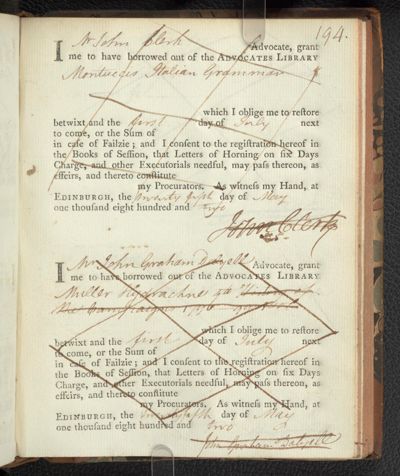 194.
I Mr John Clerk Advocate, grant
me to have borrowed out of the ADVOCATES LIBRARY
Montucci's Italian Grammar
which I oblige me to restore
betwixt and the first day of July next
to come, or the Sum of
in case of Failzie; and I consent to the registration hereof in
the Books of Session, that Letters of Horning on six Days
Charge, and other Executorials needful, may pass thereon, as
effeirs, and thereto constitute
my Procurators. As witness my Hand, at
EDINBURGH, the twenty first day of May
one thousand eight hundred and two
John Clerk
I Mr John Graham Dalyell Advocate, grant
me to have borrowed out of the ADVOCATES LIBRARY
Muller Hydrachnæ 4to
which I oblige me to restore
betwixt and the first day of July next
to come, or the Sum of
in case of Failzie; and I consent to the registration hereof in
the Books of Session, that Letters of Horning on six Days
Charge, and other Executorials needful, may pass thereon, as
effeirs, and thereto constitute
my Procurators. As witness my Hand, at
EDINBURGH, the day of May
one thousand eight hundred and two
John Graham Dalyell